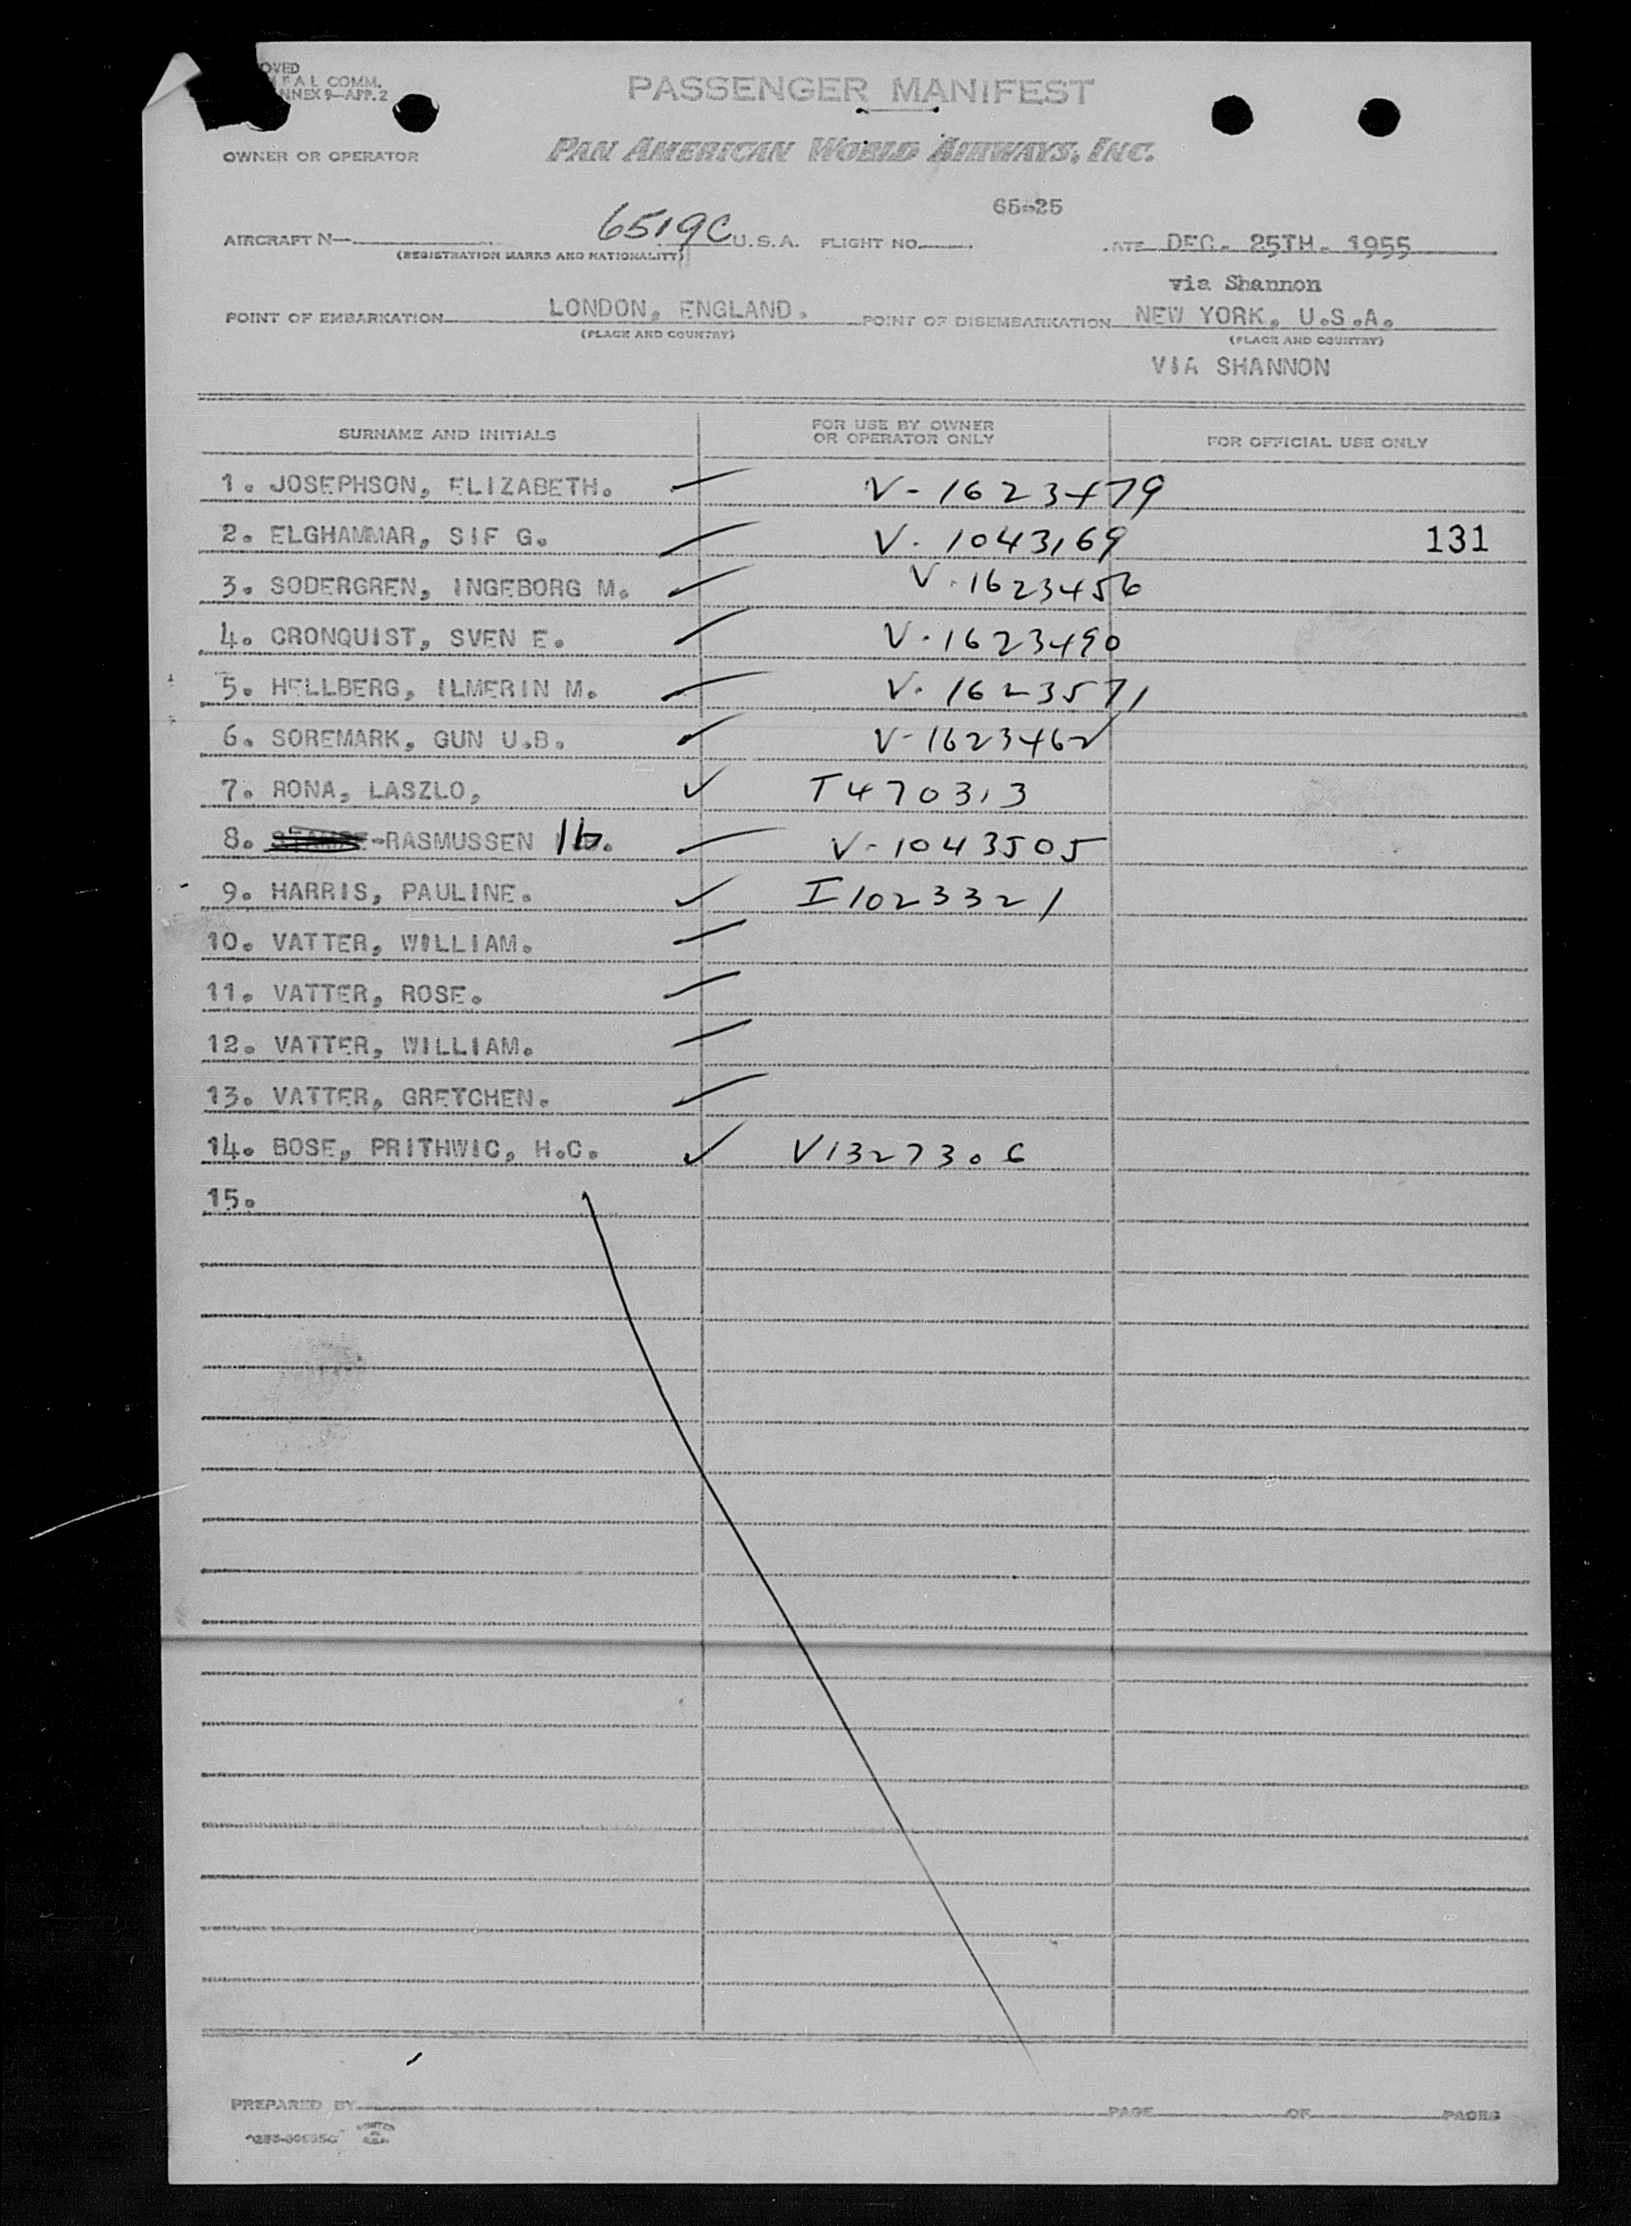 OVED
F A L COMM.
NNEX 9-APP. 2
PASSENGER MANIFEST
OWNER OR OPERATOR PAN AMERICAN WORLD AIRWAYS, INC.
65-25
AIRCRAFT N- 6519C U.S.A. FLIGHT NO. ATE DEC. 25TH. 1955
(REGISTRATION MARKS AND NATIONALITY)
via Shannon
POINT OF EMBARKATION LONDON, ENGLAND. POINT OF DISEMBARKATION NEW YORK, U.S.A.
(PLACE AND COUNTRY) (PLACE AND COUNTRY)
VIA SHANNON
SURNAME AND INITIALS FOR USE BY OWNER OR OPERATOR ONLY FOR OFFICIAL USE ONLY
1. JOSEPHSON, ELIZABETH. V-1623479
2. ELGHAMMAR, SIF G. V.1043169 131
3. SODERGREN, INGEBORG M. V.1623456
4. CRONQUIST, SVEN E. V.1623490
5. HELLBERG, ILMERIN M. V.1623571
6. SOREMARK, GUN U.B. V-1623462
7. RONA, LASZLO, T470313
8. -RASMUSSEN Ib. V-1043505
9. HARRIS, PAULINE. I1023321
10. VATTER, WILLIAM.
11. VATTER, ROSE.
12. VATTER, WILLIAM.
13. VATTER, GRETCHEN.
14. BOSE, PRITHWIC, H.C. V1327306
15.
PREPARED BY PAGE OF PAGES